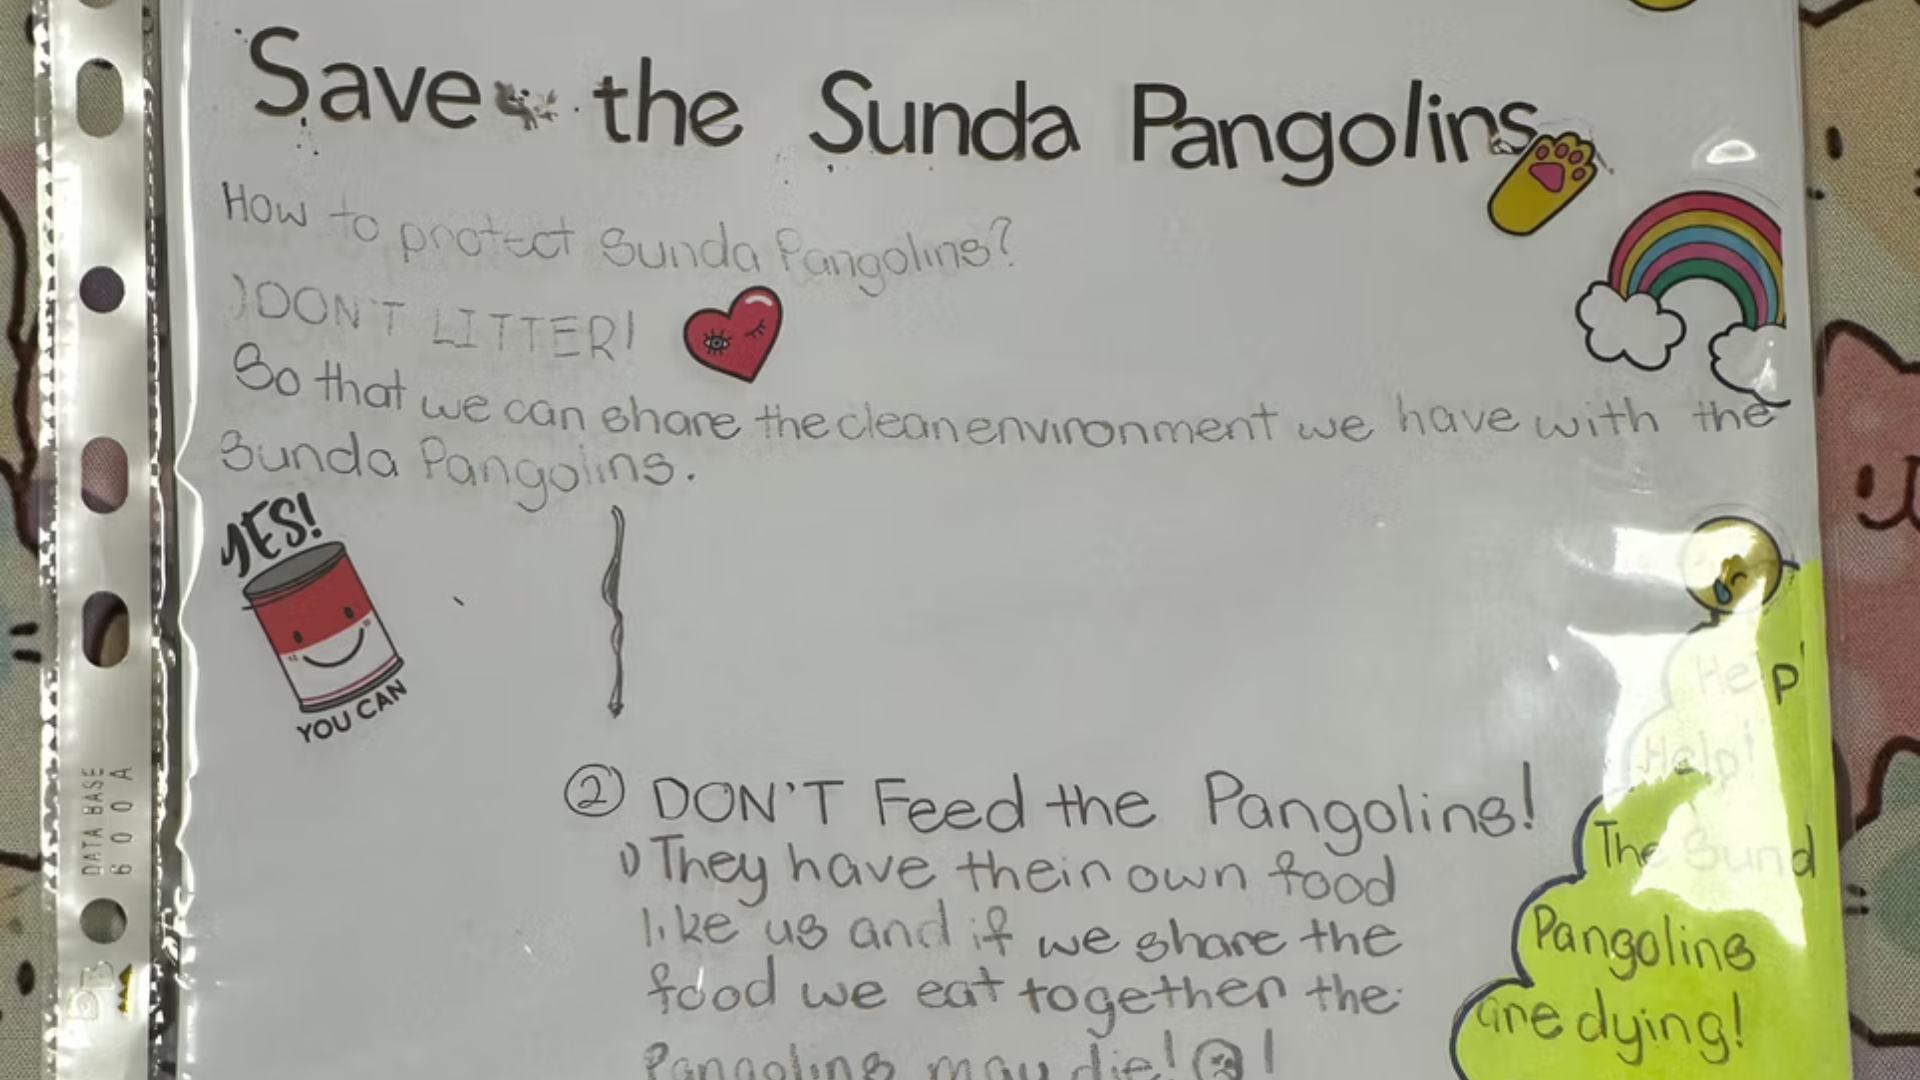 Save the Sunda Pangolins
How to protect Sunda Pangolins?
)DON'T LITTER!
So that we can share the clean environment we have with the
Sunda Pangolins.
YES!
YOU CAN
② DON'T Feed the Pangolins!
1) They have their own food
like us and if we share the
food we eat together the
Pangolins may die! !
Help!
Help!
The Sund
Pangolins
are dying!
DATABASE
600A